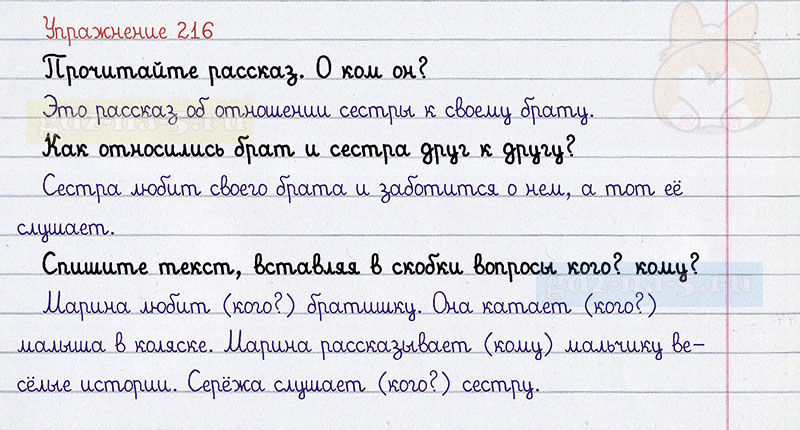 Упражнение 216
Прочитайте рассказ. О ком он?
Это рассказ об отношении сестры к своему брату.
Как относились брат и сестра друг к другу?
Сестра любит своего брата и заботится о нем, а тот её
слушает.
Спишите текст, вставляя в скобки вопросы кого? кому?
Марина любит (кого?) братишку. Она катает (кого?)
малыша в коляске. Марина рассказывает (кому) мальчику ве-
сёлые истории. Серёжа слушает (кого?) сестру.
gdz-na-5.ru
gdz-na-5.ru